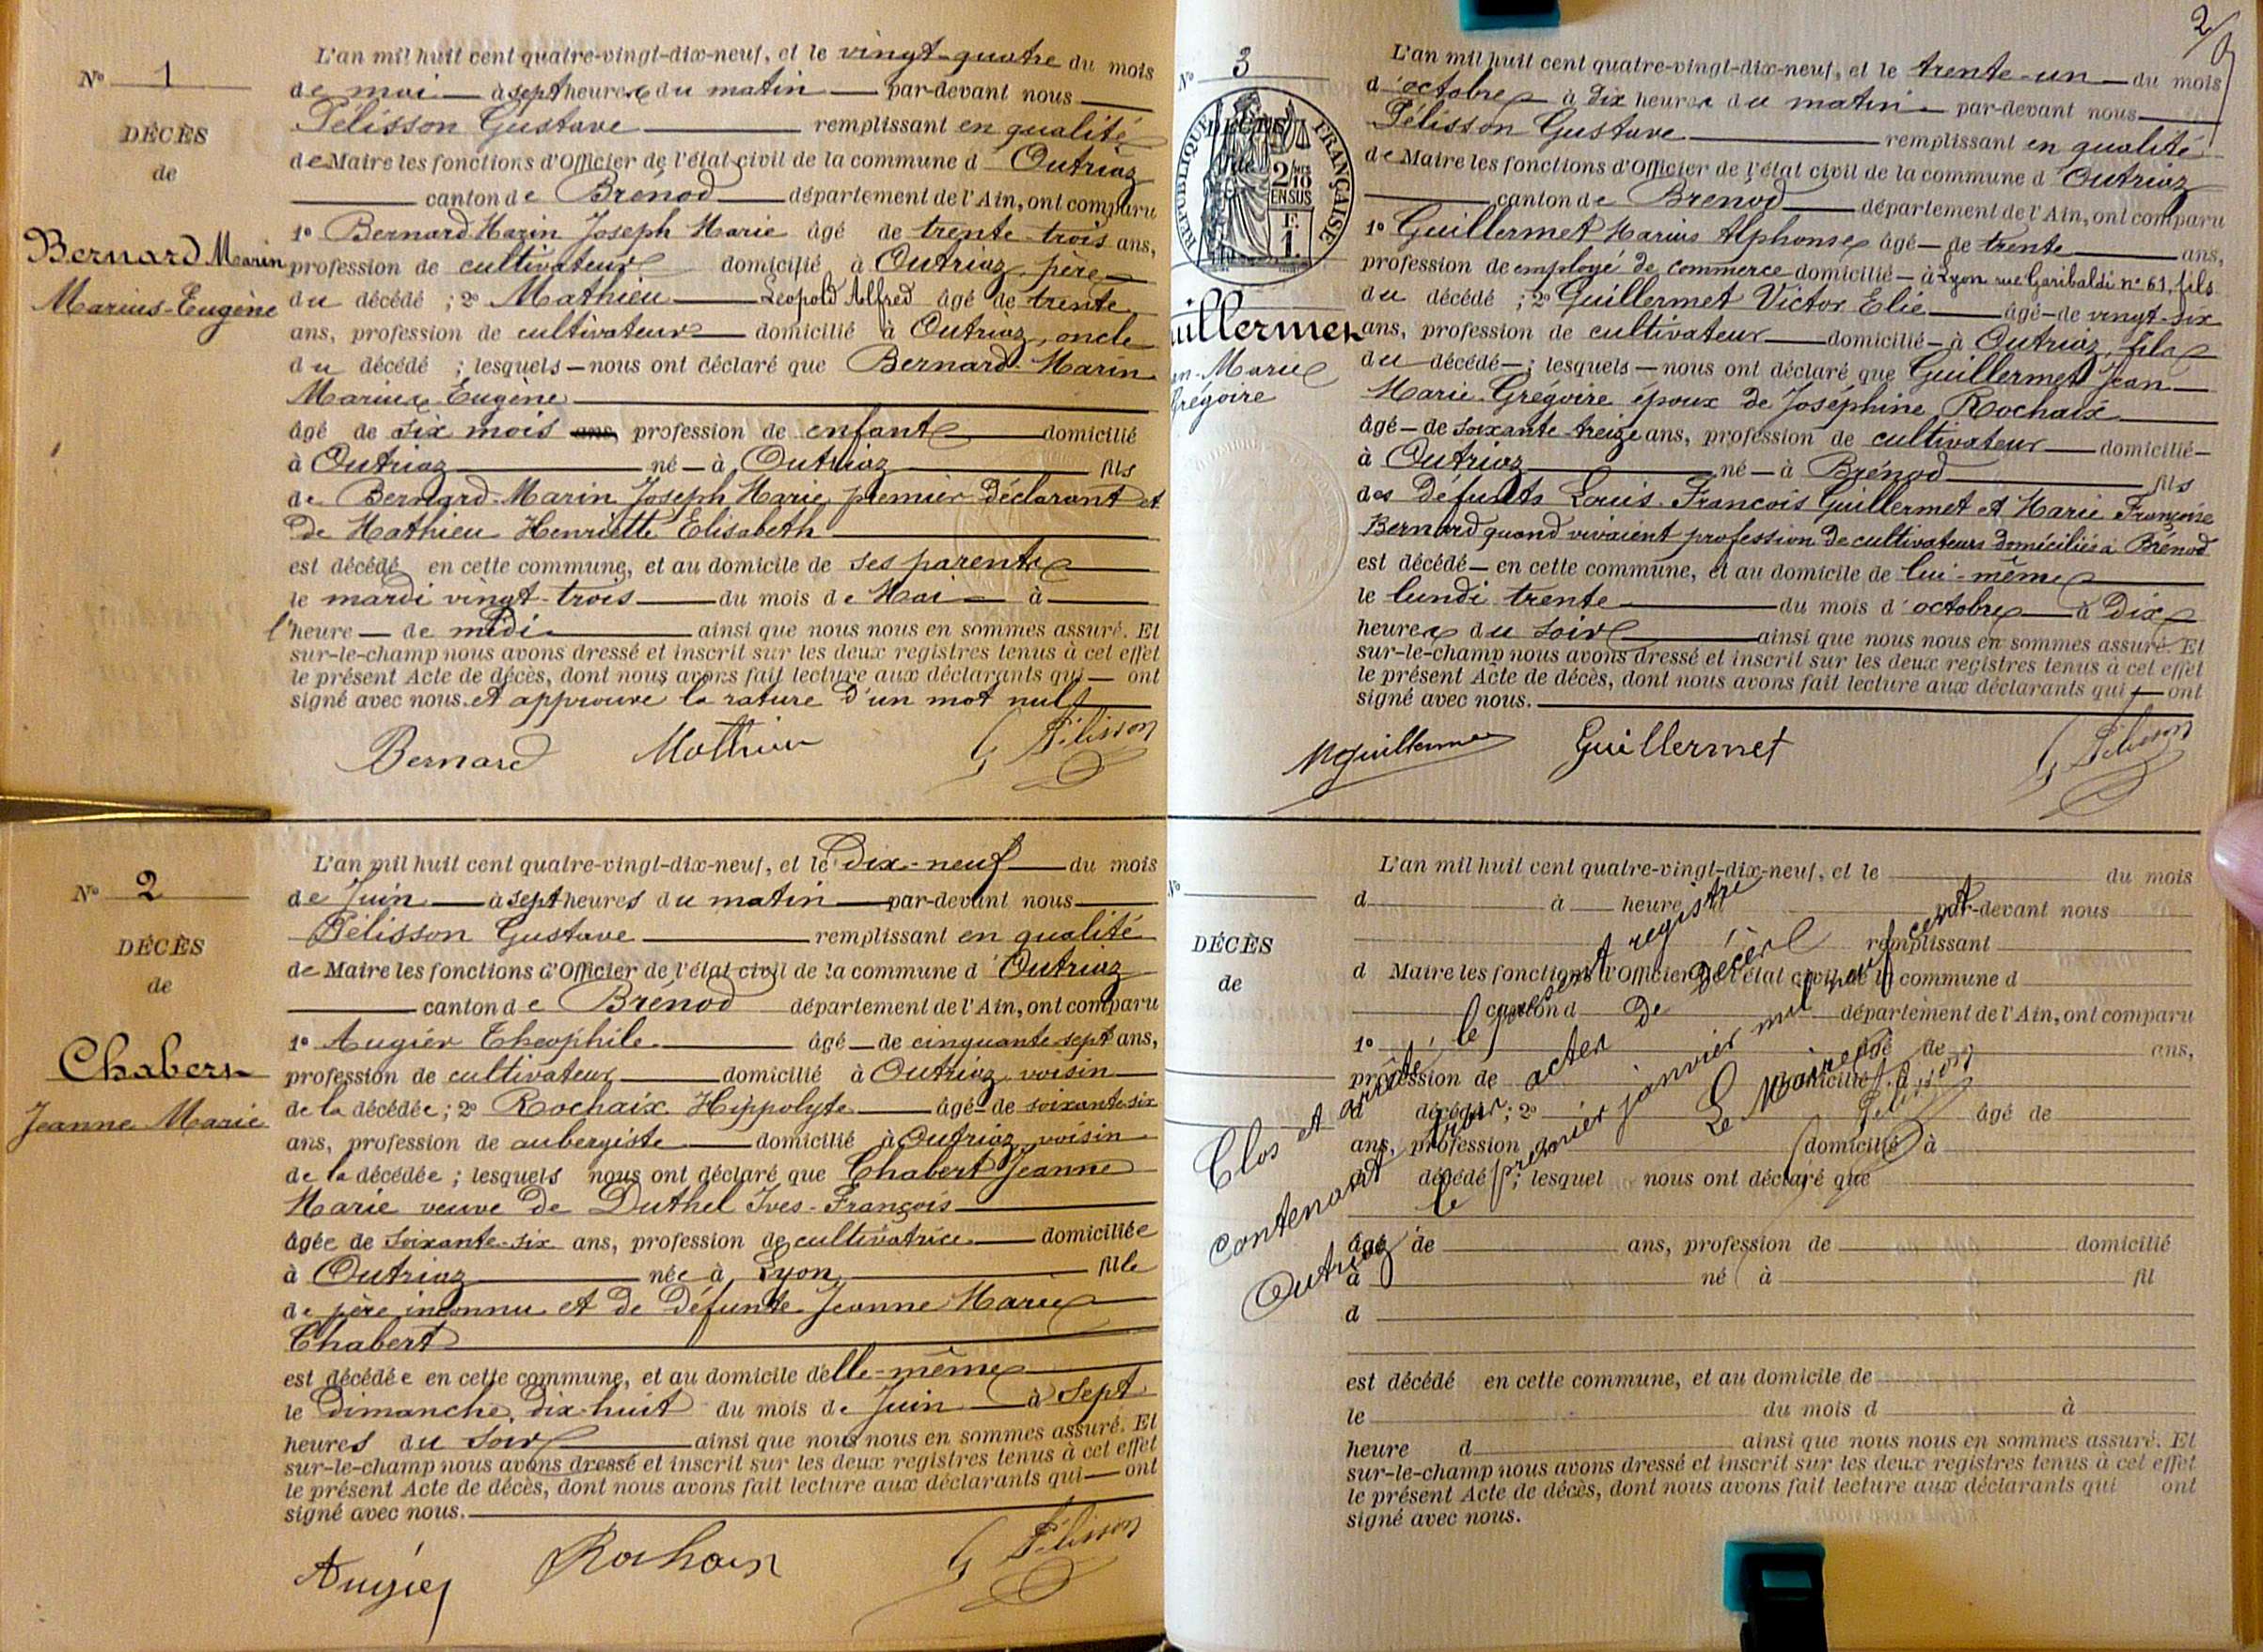 L'an mil huit cent quatre-vingt-dix-neuf, et le vingt-quatre du mois
N° 1
de mai à sept heures du matin par-devant nous
DÉCÈS
Pélisson Gustave remplissant en qualité
de
de Maire les fonctions d'Officier de l'état civil de la commune d'Outriaz
canton de Brénod département de l'Ain, ont comparu
Bernard Marin
Marius-Eugène
1° Bernard Marin Joseph Marie âgé de trente-trois ans,
profession de cultivateur domicilié à Outriaz, père
du décédé ; 2° Mathieu Léopold Alfred âgé de trente
ans, profession de cultivateur domicilié à Outriaz, oncle
du décédé ; lesquels nous ont déclaré que Bernard-Marin
Marius Eugène
âgé de six mois ans, profession de enfant domicilié
à Outriaz né à Outriaz fils
de Bernard-Marin Joseph Marie, premier déclarant et
de Mathieu Henriette Elisabeth
est décédé en cette commune, et au domicile de ses parents
le mardi vingt-trois du mois de Mai à
l'heure de midi ainsi que nous nous en sommes assuré. Et
sur-le-champ nous avons dressé et inscrit sur les deux registres tenus à cet effet
le présent Acte de décès, dont nous avons fait lecture aux déclarants qui ont
signé avec nous. et approuve la rature d'un mot nul
Bernard Mathieu G Pélisson
L'an mil huit cent quatre-vingt-dix-neuf, et le Dix-neuf du mois
N° 2
de Juin à sept heures du matin par-devant nous
DÉCÈS
Pélisson Gustave remplissant en qualité
de
de Maire les fonctions d'Officier de l'état civil de la commune d'Outriaz
canton de Brénod département de l'Ain, ont comparu
Chabert
Jeanne Marie
1° Augier Théophile âgé de cinquante sept ans,
profession de cultivateur domicilié à Outriaz, voisin
de la décédée ; 2° Rochaix Hippolyte âgé de soixante-six
ans, profession de aubergiste domicilié à Outriaz, voisin
de la décédée ; lesquels nous ont déclaré que Chabert Jeanne
Marie veuve de Duthel Ives-François
âgée de soixante-six ans, profession de cultivatrice domiciliée
à Outriaz née à Lyon fille
de père inconnu et de Défunte Jeanne Marie
Chabert
est décédée en cette commune, et au domicile d'elle-même
le Dimanche, dix-huit du mois de Juin à sept
heures du soir ainsi que nous nous en sommes assuré. Et
sur-le-champ nous avons dressé et inscrit sur les deux registres tenus à cet effet
le présent Acte de décès, dont nous avons fait lecture aux déclarants qui ont
signé avec nous.
Augier Rochaix G Pélisson
2
L'an mil huit cent quatre-vingt-dix-neuf, et le trente-un du mois
N° 3
d'octobre à dix heures du matin par-devant nous
RÉPUBLIQUE FRANÇAISE
2/10 MES EN SUS
F. 1.
DÉCÈS
de
Pélisson Gustave remplissant en qualité
de Maire les fonctions d'Officier de l'état civil de la commune d'Outriaz
canton de Brénod département de l'Ain, ont comparu
uillermet
an-Marie
Grégoire
1° Guillermet Marius Alphonse âgé de trente ans,
profession de employé de commerce domicilié à Lyon rue Garibaldi n° 61, fils
du décédé ; 2° Guillermet Victor Elie âgé de vingt-six
ans, profession de cultivateur domicilié à Outriaz, fils
du décédé ; lesquels nous ont déclaré que Guillermet Jean
Marie Grégoire époux de Joséphine Rochaix
âgé de soixante-treize ans, profession de cultivateur domicilié
à Outriaz né à Brénod fils
des Défunts Louis-François Guillermet et Marie Françoise
Bernard quand vivaient profession de cultivateurs domiciliés à Brénod
est décédé en cette commune, et au domicile de lui-même
le lundi trente du mois d'octobre à Dix
heures du soir ainsi que nous nous en sommes assuré. Et
sur-le-champ nous avons dressé et inscrit sur les deux registres tenus à cet effet
le présent Acte de décès, dont nous avons fait lecture aux déclarants qui ont
signé avec nous.
M Guillermet Guillermet G Pélisson
L'an mil huit cent quatre-vingt-dix-neuf, et le du mois
N°
d à heure d par-devant nous
DÉCÈS
remplissant
de
d Maire les fonctions d'Officier de l'état civil de la commune d
canton d département de l'Ain, ont comparu
1° âgé de ans,
profession de domicilié à
d décédé ; 2° âgé de
ans, profession domicilié à
d décédé ; lesquel nous ont déclaré que
âgé de ans, profession de domicilié
à né à fil
d
est décédé en cette commune, et au domicile de
le du mois d à
heure d ainsi que nous nous en sommes assuré. Et
sur-le-champ nous avons dressé et inscrit sur les deux registres tenus à cet effet
le présent Acte de décès, dont nous avons fait lecture aux déclarants qui ont
signé avec nous.
Clos et arrêté, le présent registre
contenant trois actes de Décès
Outriaz le premier janvier mil neuf cent
Le Maire
G Pélisson